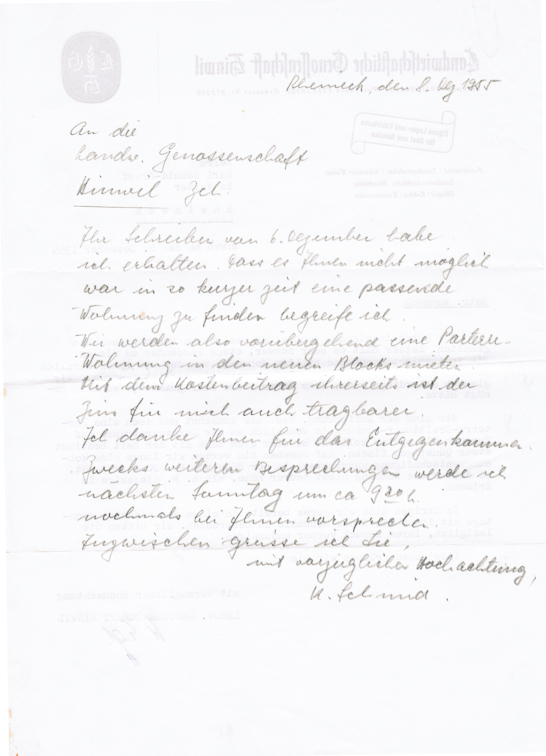 Rheineck, den 8. Dez 1955
An die
Landw. Genossenschaft
Hinwil Zch
Ihr Schreiben vom 6. Dezember habe
ich erhalten. Dass es Ihnen nicht möglich
war in so kurzer Zeit eine passende
Wohnung zu finden begreife ich.
Wir werden also vorübergehend eine Parterre-
Wohnung in den neuen Blocks mieten.
Mit dem Kostenbeitrag ihrerseits ist der
Zins für mich auch tragbarer.
Ich danke Ihnen für das Entgegenkommen.
Zwecks weiteren Besprechungen werde ich
nächsten Sonntag um ca 9 20 h.
nochmals bei Ihnen vorsprechen.
Inzwischen grüsse ich Sie,
mit vorzüglicher Hochachtung,
H. Schmid.
Landwirtschaftliche Genossenschaft Hinwil